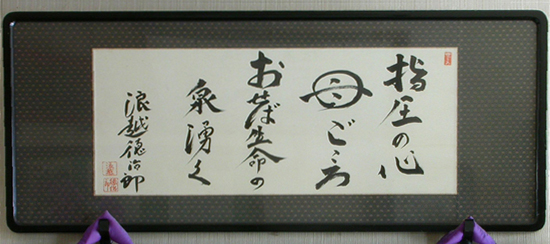 指圧の心
母ごころ
おせば生命の
泉湧く
浪越徳治郎